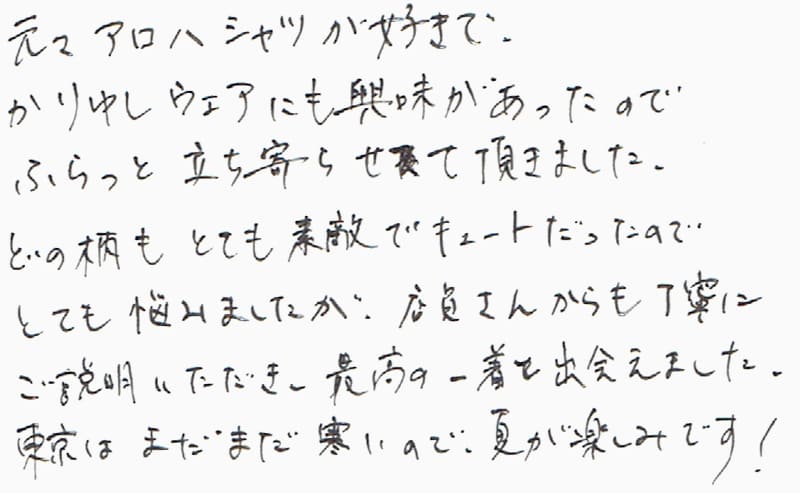 元々アロハシャツが好きで、
かりゆしウェアにも興味があったので
ふらっと立ち寄らせて頂きました。
どの柄もとても素敵でキュートだったので
とても悩みましたが、店員さんからも丁寧に
ご説明いただき、最高の一着と出会えました。
東京はまだまだ寒いので、夏が楽しみです！